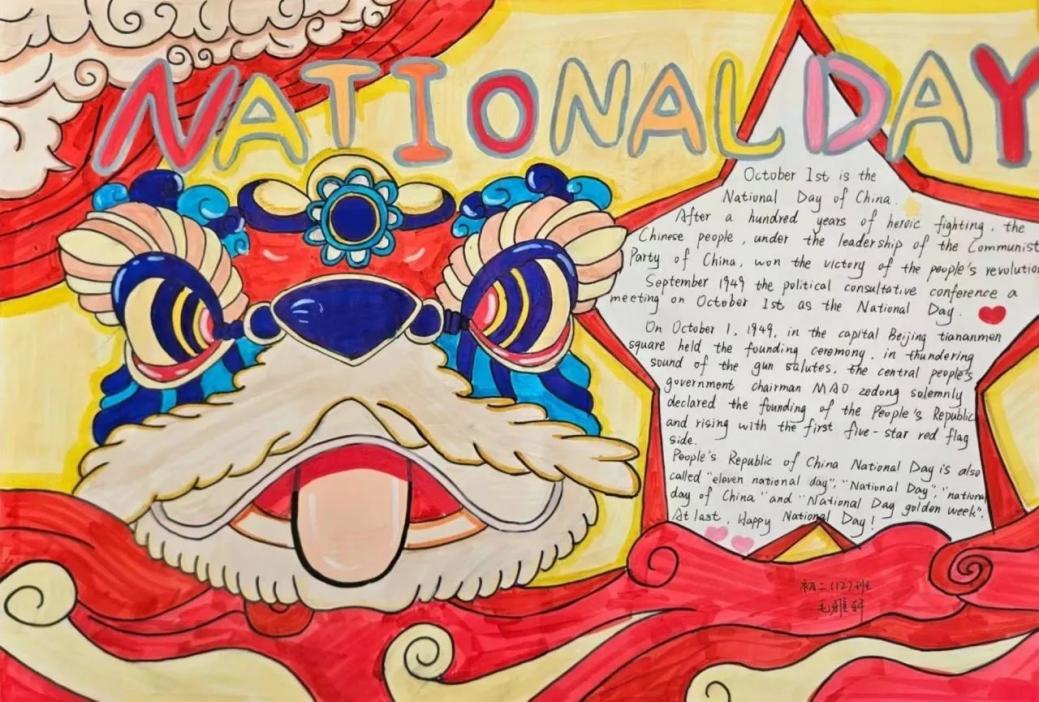 NATIONAL DAY
October 1st is the
National Day of China.
After a hundred years of heroic fighting, the
Chinese people, under the leadership of the Communist
Party of China, won the victory of the people's revolution
September 1949 the political consultative conference a
meeting on October 1st as the National Day.
On October 1, 1949, in the capital Beijing tiananmen
square held the founding ceremony, in thundering
sound of the gun salutes, the central people's
government chairman MAO zedong solemnly
declared the founding of the People's Republic
and rising with the first five-star red flag
side.
People's Republic of China National Day is also
called "eleven national day", "National Day", "national
day of China" and "National Day golden week".
At last, Happy National Day!
初二(12)班
毛雅轩